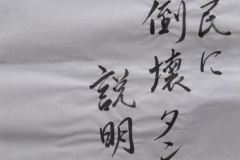 民に
倒壊タン
説明